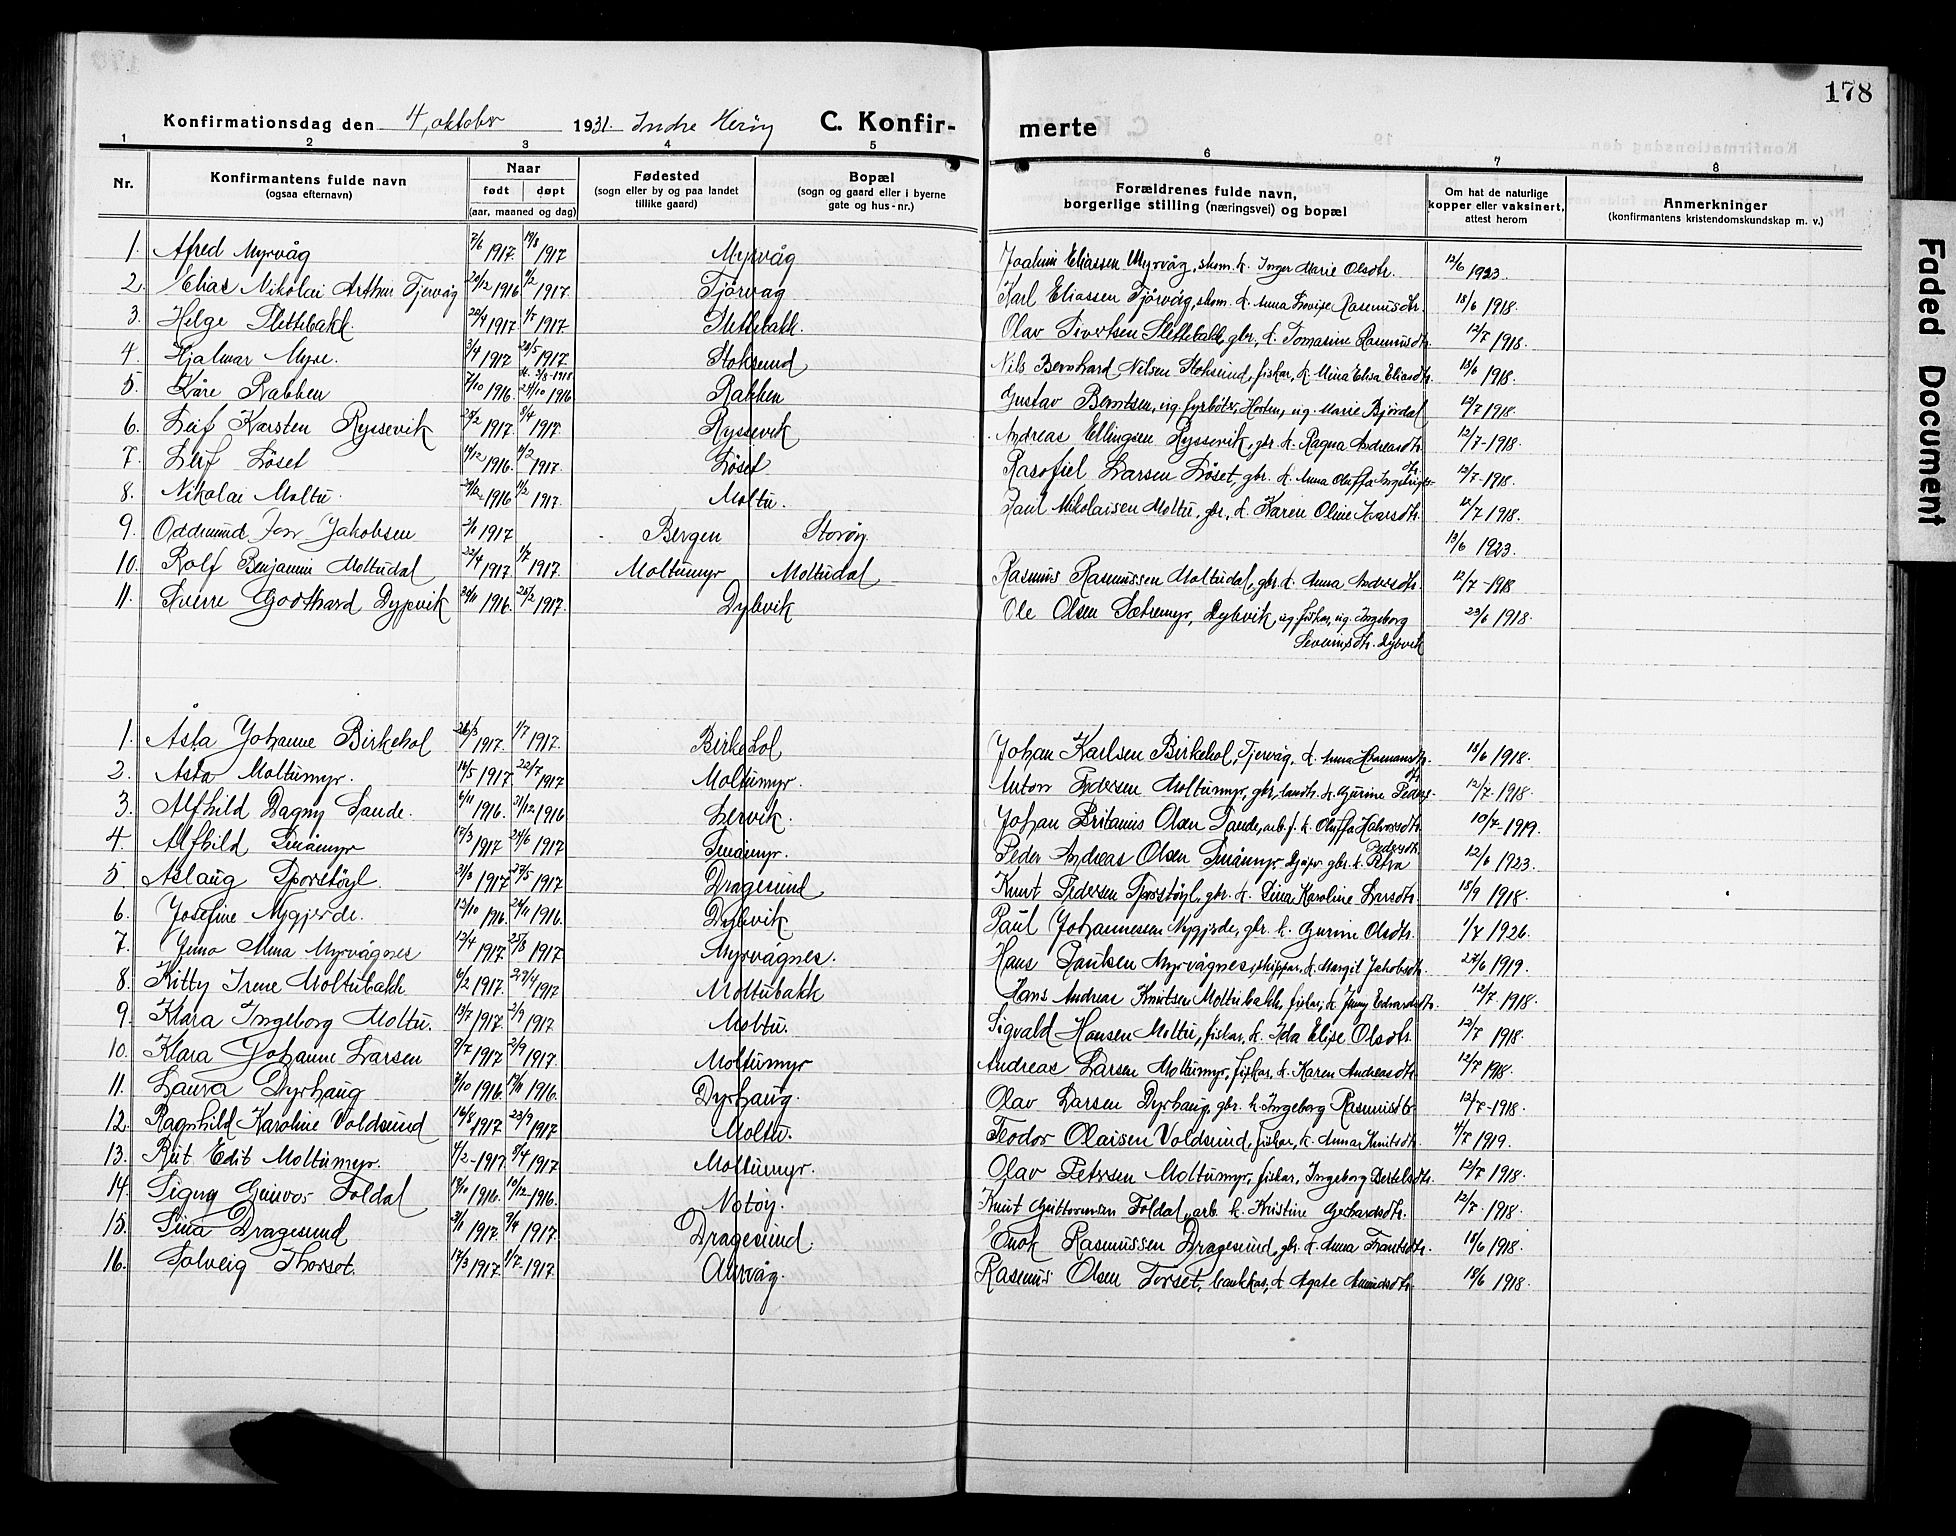 178
Konfirmationsdag den 4. oktober 1931. Indre Herøy C. Konfir- merte
1 2 3 4 5 6 7 8
Nr. Konfirmantens fulde navn (ogsaa efternavn) Naar født døpt (aar, maaned og dag) Fødested (sogn eller by og paa landet tillike gaard) Bopæl (sogn og gaard eller i byerne gate og hus-nr.) Forældrenes fulde navn, borgerlige stilling (næringsvei) og bopæl Om hat de naturlige kopper eller vaksinert, attest herom Anmerkninger (konfirmantens kristendomskundskap m. v.)
1. Alfred Myrvåg 7/6 1917. 19/8 1917 Myrvåg Joakim Eliassen Myrvåg, skom. k. Inger Marie Olsdtr. 12/6 1923.
2. Elias Nikolai Arthur Tjervåg 20/12 1916 11/2 1917. Tjörvåg Karl Eliassen Tjörvåg, skom. k. Anna Lovise Rasmusdtr. 18/6 1918.
3. Helge Slettebakk. 22/4 1917. 1/7 1917. Slettebakk. Olav Sivertsen Slettebakk, gbr, k. Tomasine Rasmusdtr. 12/7 1918.
4. Hjalmar Myse. 3/4 1917 28/5 1917. Stoksund Nils Bernhard Nilsen Stoksund, fiskar, k. Mina Elisa Eliasdtr. 18/6 1918.
5. Kåre Rabben 7/10 1916. 24/10 1916 st. 5/8-1918 Rabben Gustav Berntsen, ug. fyrbøter, Horten, ug. Marie Björdal 12/7 1918.
6. Leif Karsten Ryssevik 25/2 1917. 8/4 1917. Ryssevik Andreas Ellingsen Ryssevik, gbr. k. Ragna Andreasdtr. 12/7-1918.
7. Leif Löset 14/12 1916. 11/2 1917. Löset Rasofiel Larsen Löset, gbr. k. Anna Oluffa Ingebrigts-dtr. 12/7-1918.
8. Nikolai Moltu. 29/12 1916 11/2 1917. Moltu. Paul Nikolaisen Moltu, gbr, k. Karen Oline Ivarsdtr. 12/7 1918.
9. Oddmund Jakobsen 2/11 1917 Bergen Storöy. 13/6 1923.
10. Rolf Benjamin Moltudal 22/4 1917. 1/7 1917. Moltumyr Moltudal Rasmus Rasmussen Moltudal, gbr. k. Anna Andersdtr. 12/7-1918
11. Sverre Godthard Dypvik 30/11 1916. 25/2 1917. Dybvik Ole Olsen Sætremyr, Dybvik, ug. fiskar, ug. Ingeborg
Severinsdtr. Dybvik 23/6 1918.
1. Åsta Johanne Birkehol 26/3 1917. 1/7 1917. Birkehol Johan Karlsen Birkehol, Tjervåg, k. Anna Hermansdtr. 18/6 1918.
2. Asta Moltumyr. 14/5 1917 22/7 1917 Moltumyr. Anton Pedersen Moltumyr, gbr, landh. k. Gurine Peders-dtr. 12/7-1918.
3. Alfhild Dagny Sande. 6/11 1916. 31/12 1916 Lervik. Johan Britanus Olsen Sande, arb. f. k. Oluffa Halvorsdtr. 10/7-1919.
4. Alfhild Småmyr 17/3 1917 24/6 1917 Småmyr. Peder Andreas Olsen Småmyr gbr. k. Petra Pedersdtr. 12/6 1923.
5. Aslaug Sporstöyl. 31/3 1917 27/5 1917 Dragesund Knut Pedersen Sporstöyl, gbr. k. Lina Karoline Larsdtr. 18/9 1918.
6. Josefine Nygjerde. 12/10 1916. 24/11 1916. Dybvik Paul Johannessen Nygjerde, gbr. k. Gurine Olsdtr. 1/7 1926.
7. Mina Myrvågnes 12/4 1917. 25/8 1917. Myrvågnes. Hans Paulsen Myrvågnes, skippar, k. Margit Jakobsdtr. 24/6 1919.
8. Kitty Irene Moltubakk 6/2 1917. 29/4 1917 Moltubakk Hans Andreas Knutsen Moltubakk, fiskar, k. Jenny Edvardsdtr. 12/7 1918.
9. Klara Ingeborg Moltu. 13/7 1917. 2/9 1917 Moltu. Sigvald Hansen Moltu, fiskar, k. Ida Elise Olsdtr. 12/7 1918.
10. Klara Johanne Larsen 9/7 1917 2/9 1917. Moltumyr Andreas Larsen Moltumyr, fiskar, k. Karen Andreasdtr. 12/7 1918.
11. Laura Dyrhaug 7/10 1916. 19/11 1916. Dyrhaug. Olav Larsen Dyrhaug, gbr. k. Ingeborg Rasmusdtr 12/7-1918.
12. Ragnhild Karoline Voldsund 16/8 1917 23/9 1917 Moltu. Teodor Olaisen Voldsund, fiskar, k. Anna Knutsdtr. 4/7 1919.
13. Rut Edit Moltumyr. 4/2-1917. 8/4 1917 Moltumyr. Olav Petersen Moltumyr, fiskar, Ingeborg Bertelsdtr. 12/7 1918.
14. Signy Gunvor Foldal 19/10 1916. 10/12-1916. Notöy. Knut Guttormsen Foldal, arb. k. Kristine Gerhardsdtr. 12/7-1918.
15. Sina Dragesund 31/1 1917. 9/4 1917. Dragesund. Enok Rasmussen Dragesund, gbr. k. Anna Frantsdtr. 18/6 1918.
16. Solveig Thorset. 17/3 1917 1/7-1917. Aurvåg. Rasmus Olsen Torset, bankkas, k. Agate Amundsdtr. 18/6 1918.
Faded Document